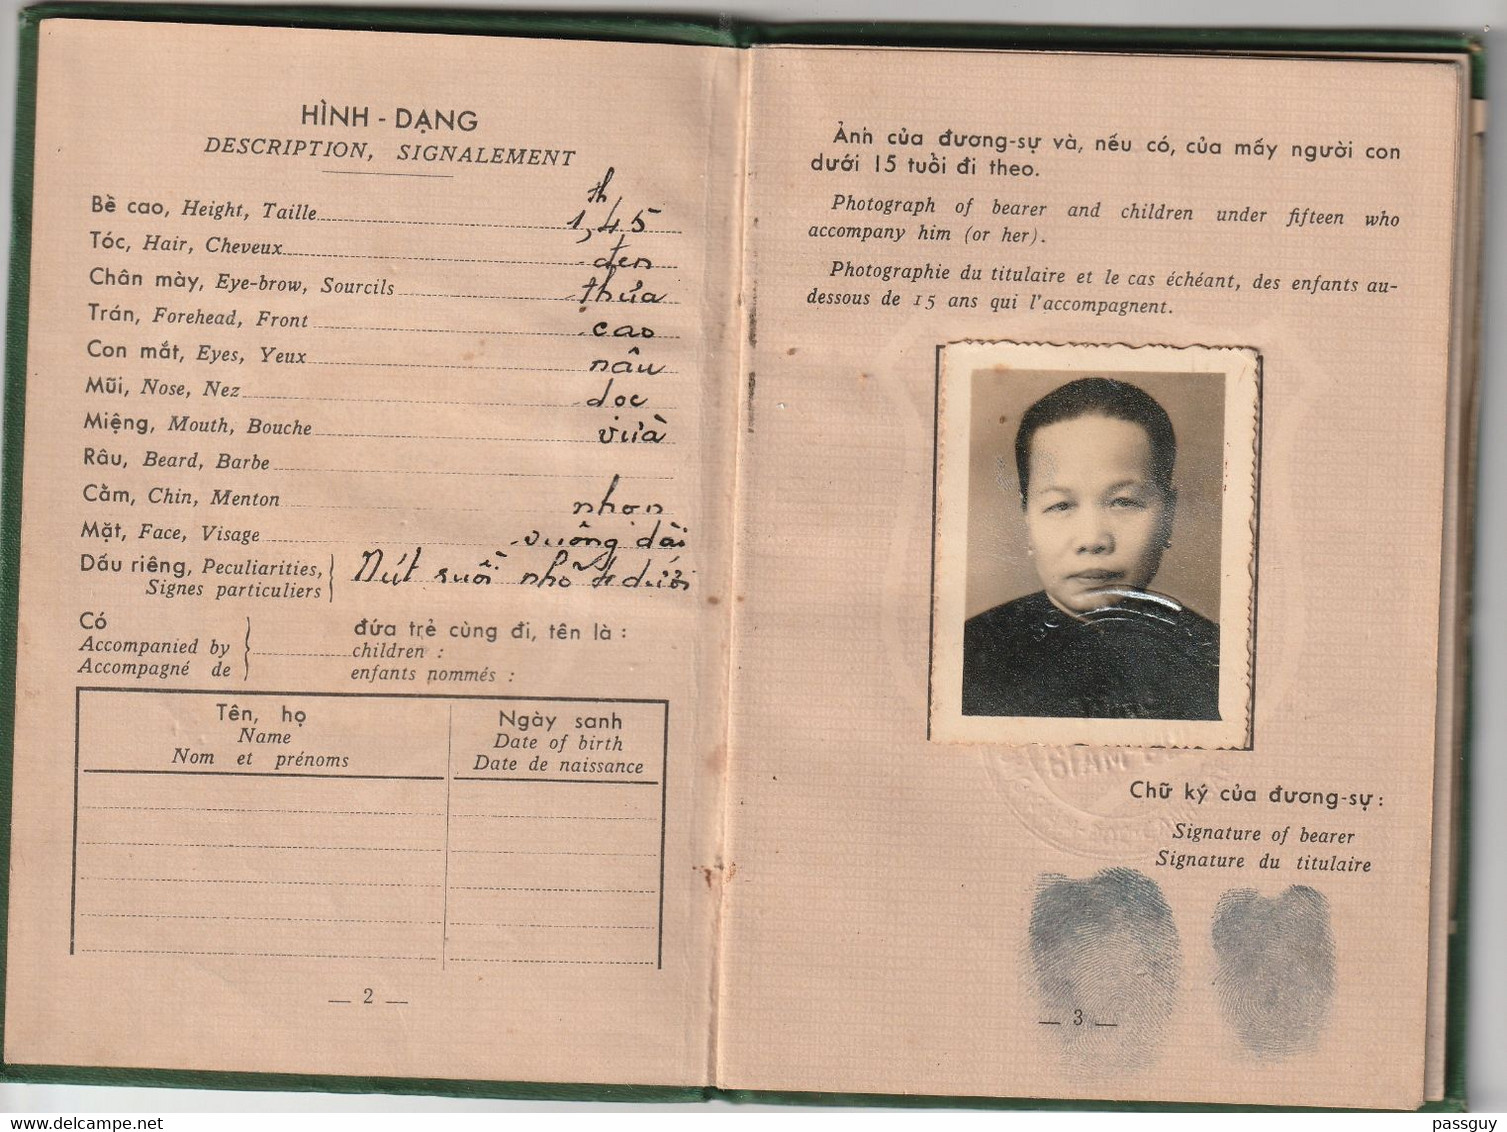 HÌNH - DẠNG
DESCRIPTION, SIGNALEMENT
Bề cao, Height, Taille 1th,45
Tóc, Hair, Cheveux đen
Chân mày, Eye-brow, Sourcils thưa
Trán, Forehead, Front cao
Con mắt, Eyes, Yeux nâu
Mũi, Nose, Nez dọc
Miệng, Mouth, Bouche vừa
Râu, Beard, Barbe
Cằm, Chin, Menton nhọn
Mặt, Face, Visage vuông dài
Dấu riêng, Peculiarities,
Signes particuliers } Nút ruồi nhỏ dưới
Có
Accompanied by
Accompagné de
đứa trẻ cùng đi, tên là :
children :
enfants nommés :
Tên, họ
Name
Nom et prénoms
Ngày sanh
Date of birth
Date de naissance
— 2 —
Ảnh của đương-sự và, nếu có, của mấy người con
dưới 15 tuổi đi theo.
Photograph of bearer and children under fifteen who
accompany him (or her).
Photographie du titulaire et le cas échéant, des enfants au-
dessous de 15 ans qui l'accompagnent.
Chữ ký của đương-sự :
Signature of bearer
Signature du titulaire
— 3 —
delcampe.net
passguy